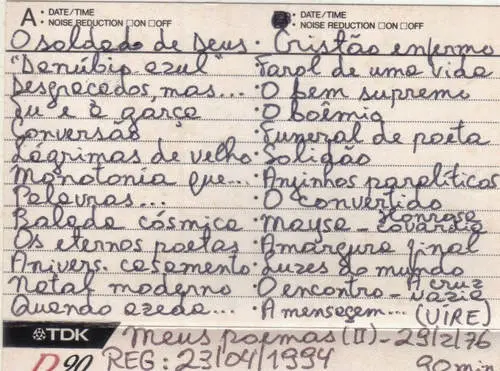 A • DATE/TIME
• NOISE REDUCTION □ON □OFF
O soldado de Deus
"Danúbio azul"
Desgraçados, mas...
Eu e a garça
Conversão
Lágrimas de velho
Monotonia que...
Palavras...
Balada cósmica
Os eternos poetas
Anivers. casamento
Natal moderno
Quando azeda...
• DATE/TIME
• NOISE REDUCTION □ON □OFF
· Cristão enfermo
· Farol de uma vida
· O bem supremo
· O boêmio
· Funeral de poeta
· Solidão
· Anjinhos paralíticos
· O convertido
· Maysa - Honrosa covardia
· Amargura final
· Luzes do mundo
· O encontro - A cruz vazia
· A mensagem... (VIRE)
TDK
Meus poemas (II) - 29/2/76
D90 REG: 23/04/1994 90 min